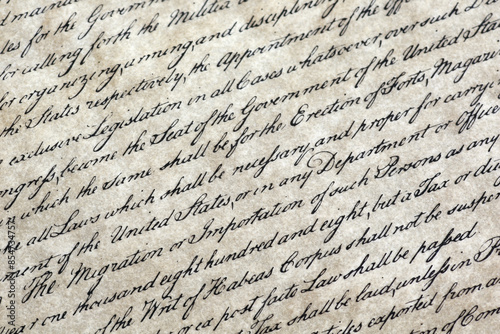 d maintai
les for the Governmen
for calling forth the Militia
for organizing, arming, and disciplining
the States respectively, the Appointment of the Off
exclusive Legislation in all Cases whatsoever, over such D
ongress, become the Seat of the Government of the United Stat
in which the same shall be, for the Erection of Forts, Magaz
e all Laws which shall be necessary and proper for carryi
ment of the United States, or in any Department or Office
The Migration or Importation of such Persons as any
ear one thousand eight hundred and eight, but a Tax or du
of the Writ of Habeas Corpus shall not be suspe
or ex post facto Law shall be passed.
Tax shall be laid, unless in P
exported from a
Adobe Stock | #854734752